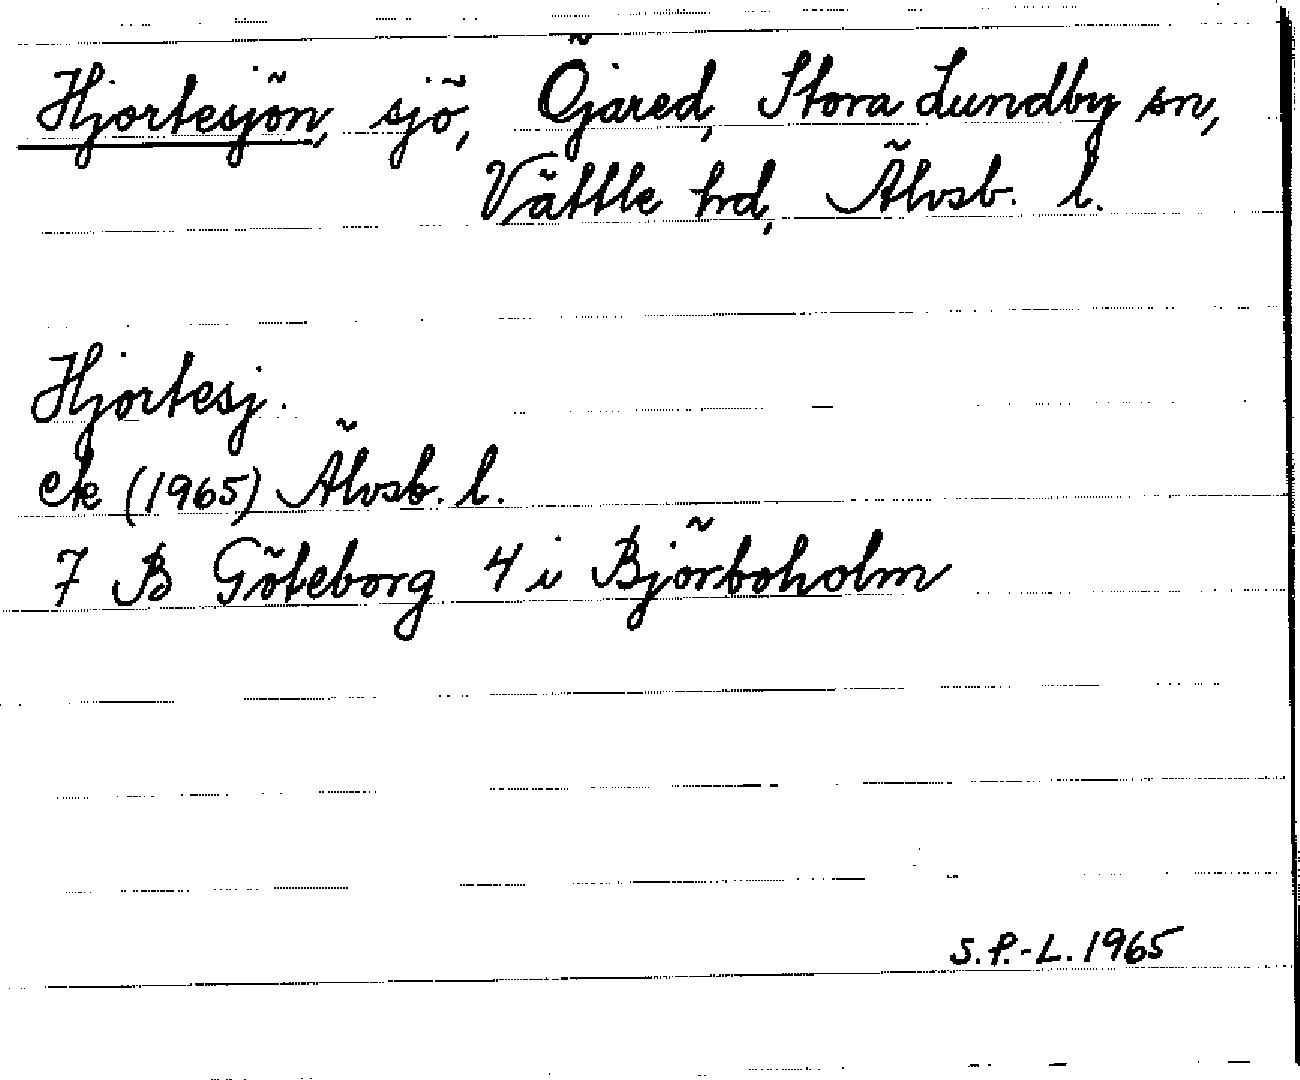 Hjortesjön, sjö, Öjared, Stora Lundby sn,
Vättle hd, Älvsb. l.
Hjortesj.
ek (1965) Älvsb. l.
7 B Göteborg 4 i Björboholm
S.P.-L. 1965